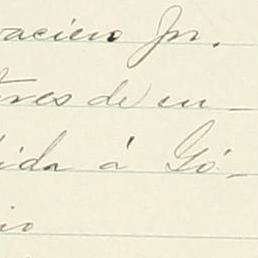 racieno Jr.
tres de en-
dida á Gó-
io